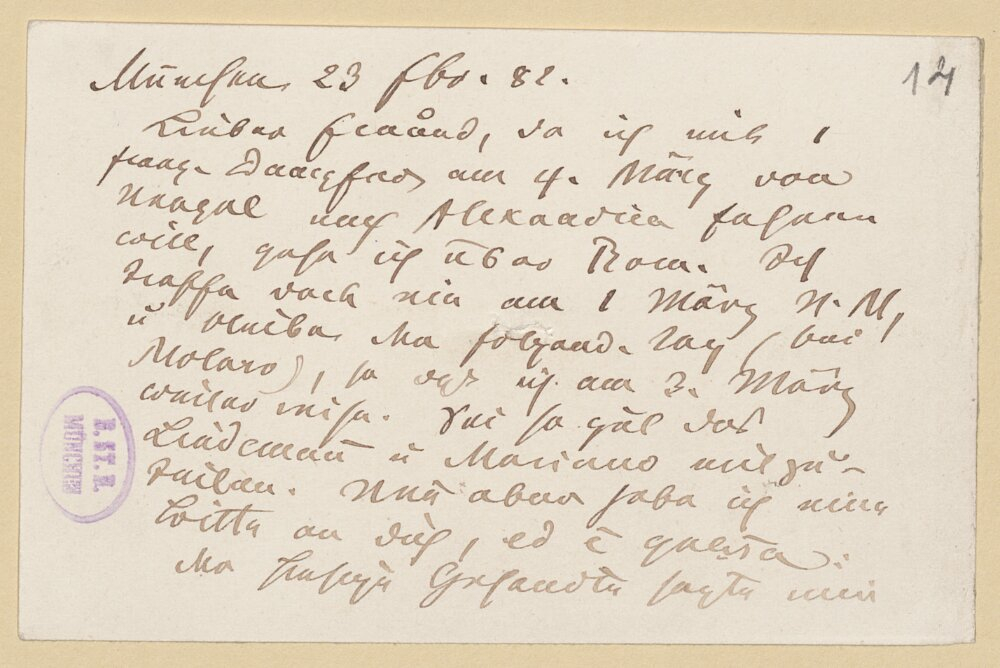 München 23 Fbr. 82.
14
Lieber Freund, da ich mit 1
franz. Dampfer am 4. März von
Neapel nach Alexandrien fahren
will, gehe ich über Rom. Ich
treffe dort ein am 1 März N. M,
u bleibe den folgend. Tag (bei
Molaro), so daß ich am 3. März
weiter reise. Sei so gut das
Lindemann u Mariano mitzu-
teilen. Nun aber habe ich eine
Bitte an dich, ed è questa:
Der Gesandte sagte mir
B. ST. B.
MÜNCHEN